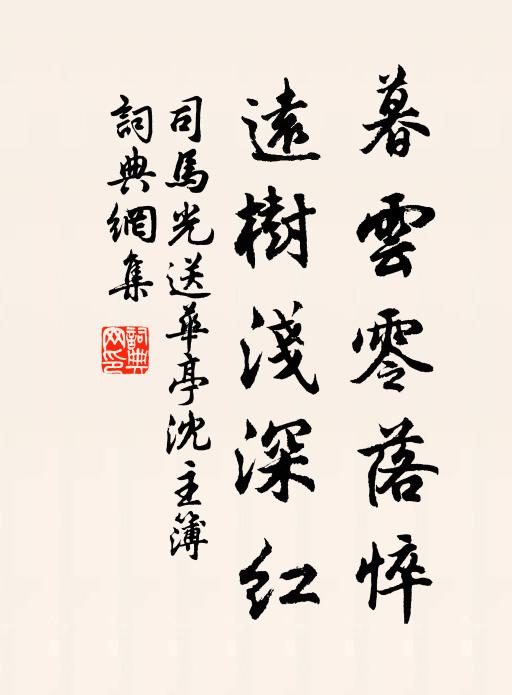 暮雲零落悴
遠樹淺深紅
司馬光送華亭沈主簿
詞典網集
詞典網印